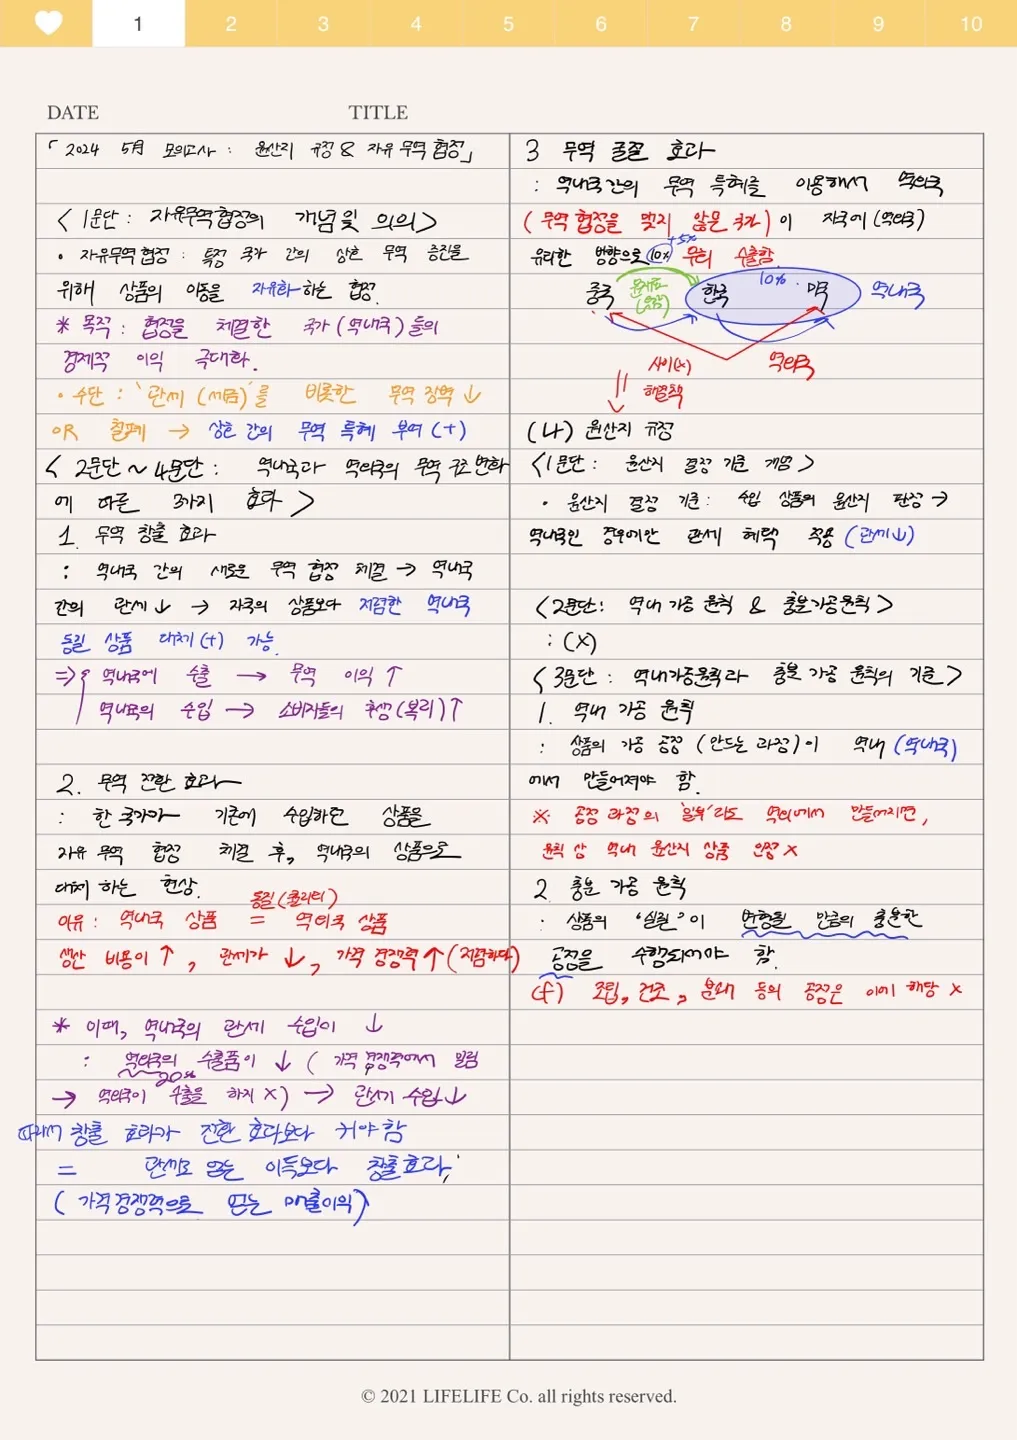 1
2
3
4
5
6
7
8
9
10
DATE
TITLE
「2024 5月 모의고사 : 원산지 규정 & 자유 무역 협정」
<1문단 : 자유무역협정의 개념 및 의의>
• 자유무역협정 : 특정 국가 간의 상호 무역 증진을
위해 상품의 이동을 자유화하는 협정.
* 목적 : 협정을 체결한 국가 (역내국)들의
경제적 이익 극대화.
• 수단 : '관세 (세금)'를 비롯한 무역 장벽 ↓
OR 철폐 → 상호 간의 무역 특혜 부여 (+)
< 2문단 ~ 4문단 : 역내국과 역외국의 무역 구조 변화
에 따른 3가지 효과 >
1. 무역 창출 효과
: 역내국 간의 새로운 무역 협정 체결 → 역내국
간의 관세 ↓ → 자국의 상품보다 저렴한 역내국
동질 상품 대체 (+) 가능.
⇒ 역내국에 수출 → 무역 이익 ↑
역내국의 수입 → 소비자들의 후생 (복리) ↑
2. 무역 전환 효과
: 한 국가가 기존에 수입하던 상품을
자유 무역 협정 체결 후, 역내국의 상품으로
대체 하는 현상.
동질 (퀄리티)
이유 : 역내국 상품 = 역외국 상품
생산 비용이 ↑, 관세가 ↓, 가격 경쟁력 ↑ (저렴하다)
* 이때, 역내국의 관세 수입이 ↓
: 역외국의 수출품이 ↓ ( 가격 경쟁력에서 밀림
20%
→ 역외국이 수출을 하지 X) → 관세 수입 ↓
따라서 창출 효과가 전환 효과보다 커야 함
= 관세로 얻는 이득보다 창출효과,
( 가격 경쟁력으로 얻는 매출이익)
3 무역 굴절 효과
: 역내국 간의 무역 특혜를 이용해서 역외국
( 무역 협정을 맺지 않은 국가 ) 이 자국에 (역외국)
+5%
유리한 방향으로 10% 우회 수출함
중국 원재료 (유입) 한국 10% 미국 역내국
사이(x) 역외국
해결책
(나) 원산지 규정
<1문단 : 원산지 결정 기준 개념 >
• 원산지 결정 기준 : 수입 상품의 원산지 판정 →
역내국인 경우에만 관세 혜택 적용 (관세↓)
<2문단 : 역내 가공 원칙 & 충분가공원칙 >
: (X)
< 3문단 : 역내가공원칙과 충분 가공 원칙의 기준 >
1. 역내 가공 원칙
: 상품의 가공 공정 (만드는 과정) 이 역내 (역내국)
에서 만들어져야 함.
※ 공정 과정의 '일부'라도 역외에서 만들어지면,
원칙 상 역내 원산지 상품 인정 X
2. 충분 가공 원칙
: 상품의 '실질'이 변형될 만큼의 충분한
공정을 수행되어야 함.
(f) 조립, 건조, 분쇄 등의 공정은 이에 해당 X
© 2021 LIFELIFE Co. all rights reserved.